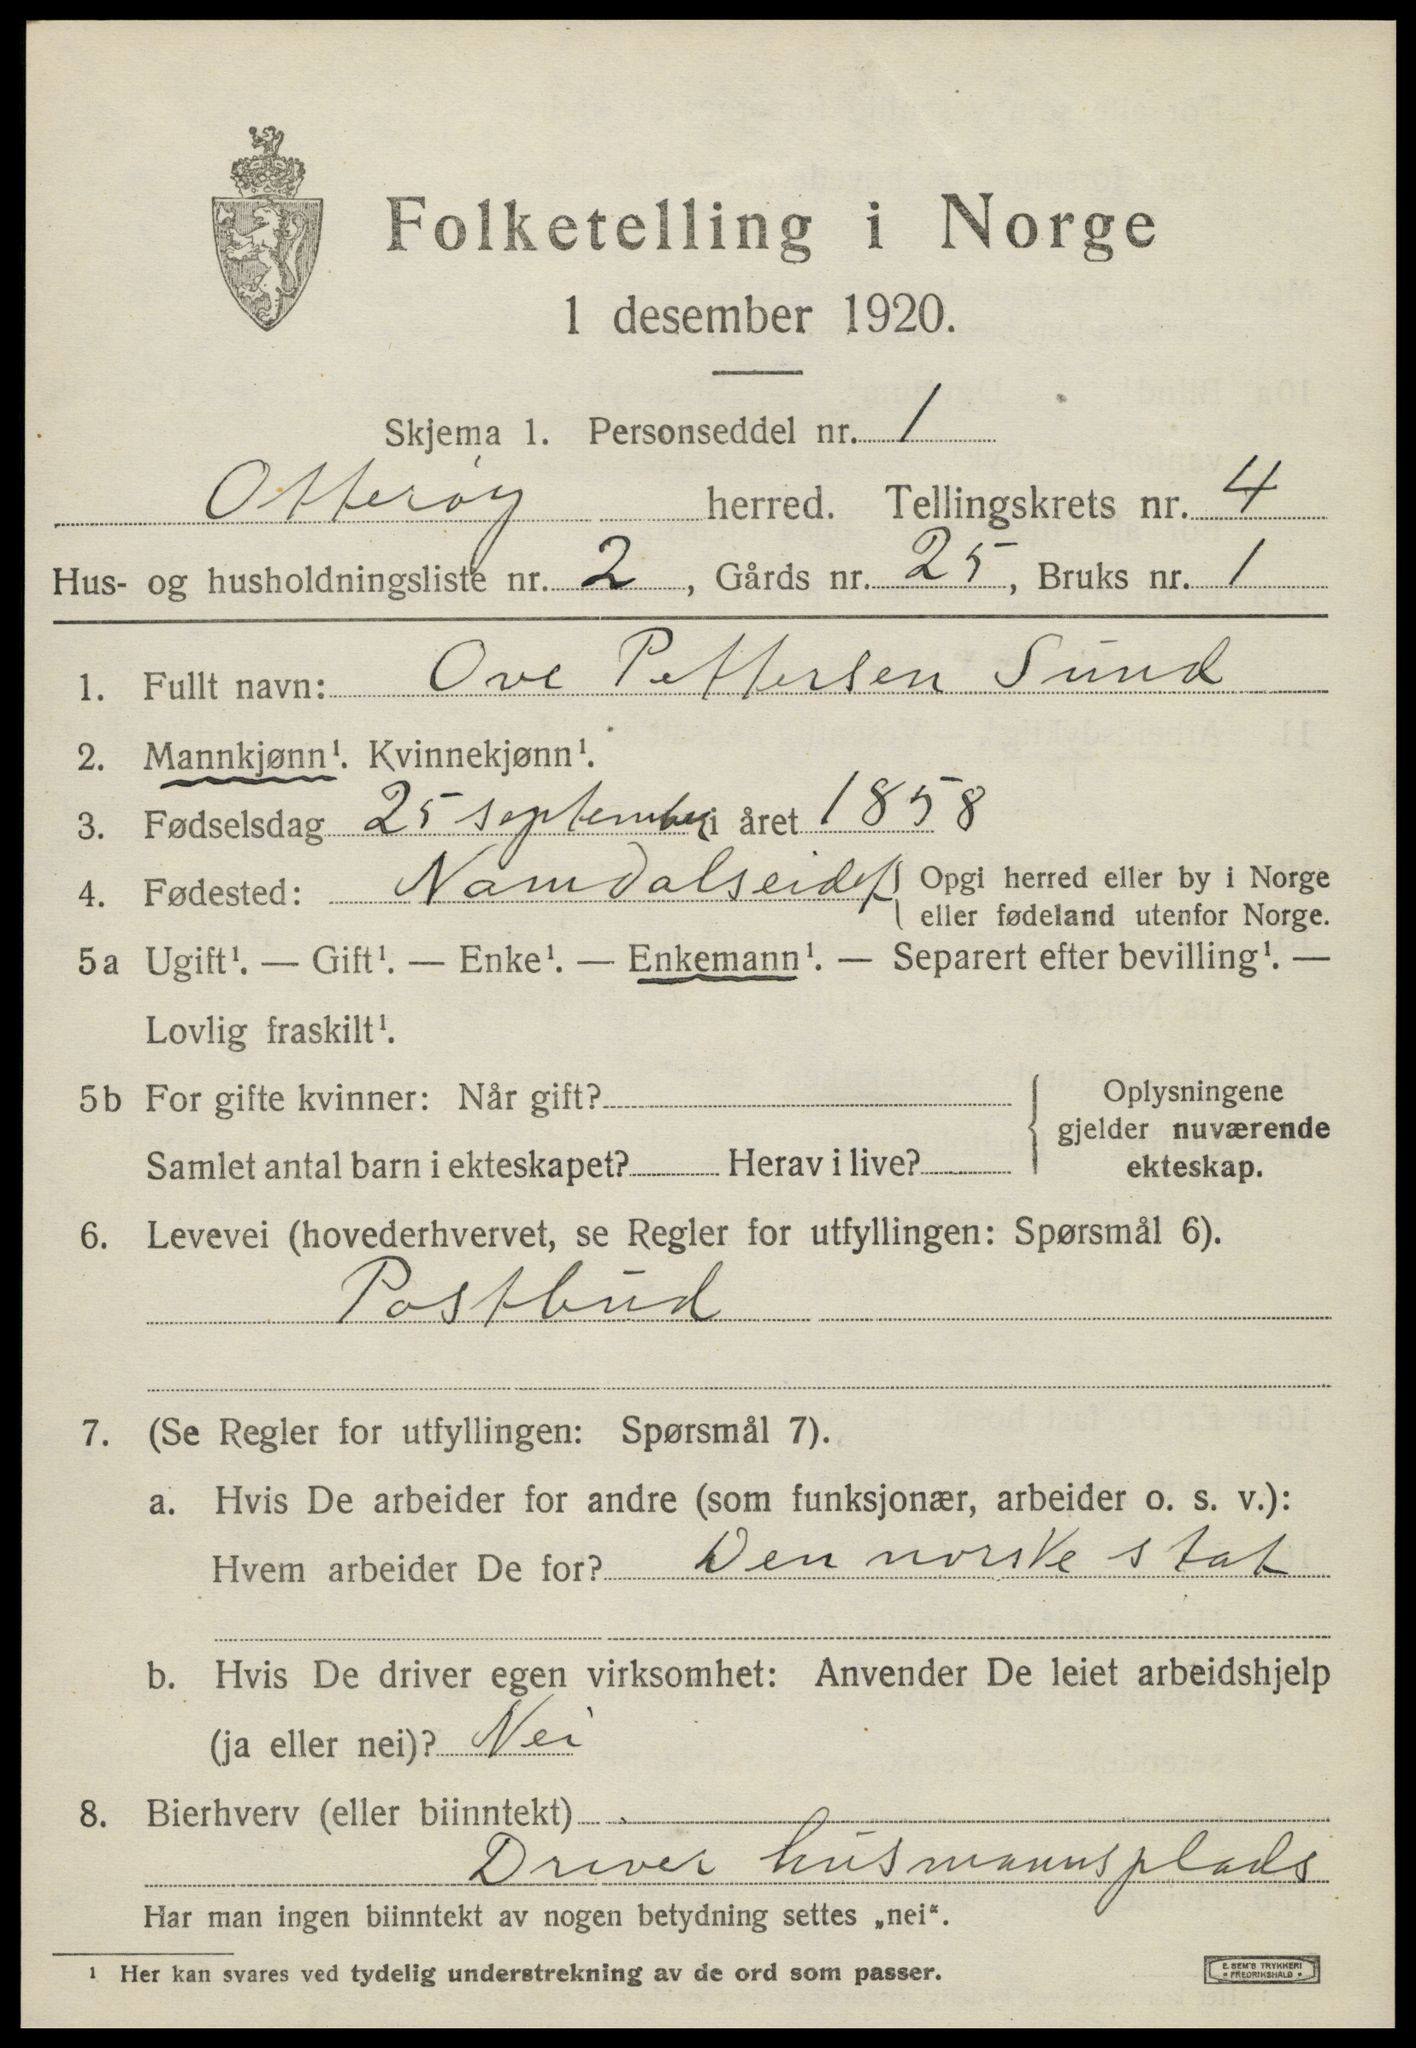 Folketelling i Norge
1 desember 1920.
Skjema 1. Personseddel nr. 1
Otterøy herred. Tellingskrets nr. 4
Hus- og husholdningsliste nr. 2, Gårds nr. 25, Bruks nr. 1
1. Fullt navn: Ove Pettersen Sund
2. Mannkjønn¹. Kvinnekjønn¹.
3. Fødselsdag 25 september i året 1858
4. Fødested: Namdalseidet { Opgi herred eller by i Norge
eller fødeland utenfor Norge.
5a Ugift¹. — Gift¹. — Enke¹. — Enkemann¹. — Separert efter bevilling¹. —
Lovlig fraskilt¹.
5b For gifte kvinner: Når gift?
Samlet antal barn i ekteskapet? Herav i live?
{ Oplysningene
gjelder nuværende
ekteskap.
6. Levevei (hovederhvervet, se Regler for utfyllingen: Spørsmål 6).
Postbud
7. (Se Regler for utfyllingen: Spørsmål 7).
a. Hvis De arbeider for andre (som funksjonær, arbeider o. s. v.):
Hvem arbeider De for? Den norske stat
b. Hvis De driver egen virksomhet: Anvender De leiet arbeidshjelp
(ja eller nei)? Nei
8. Bierhverv (eller biinntekt)
Driver husmannsplads
Har man ingen biinntekt av nogen betydning settes „nei“.
¹ Her kan svares ved tydelig understrekning av de ord som passer.
E. SEM'S TRYKKERI
• FREDRIKSHALD •